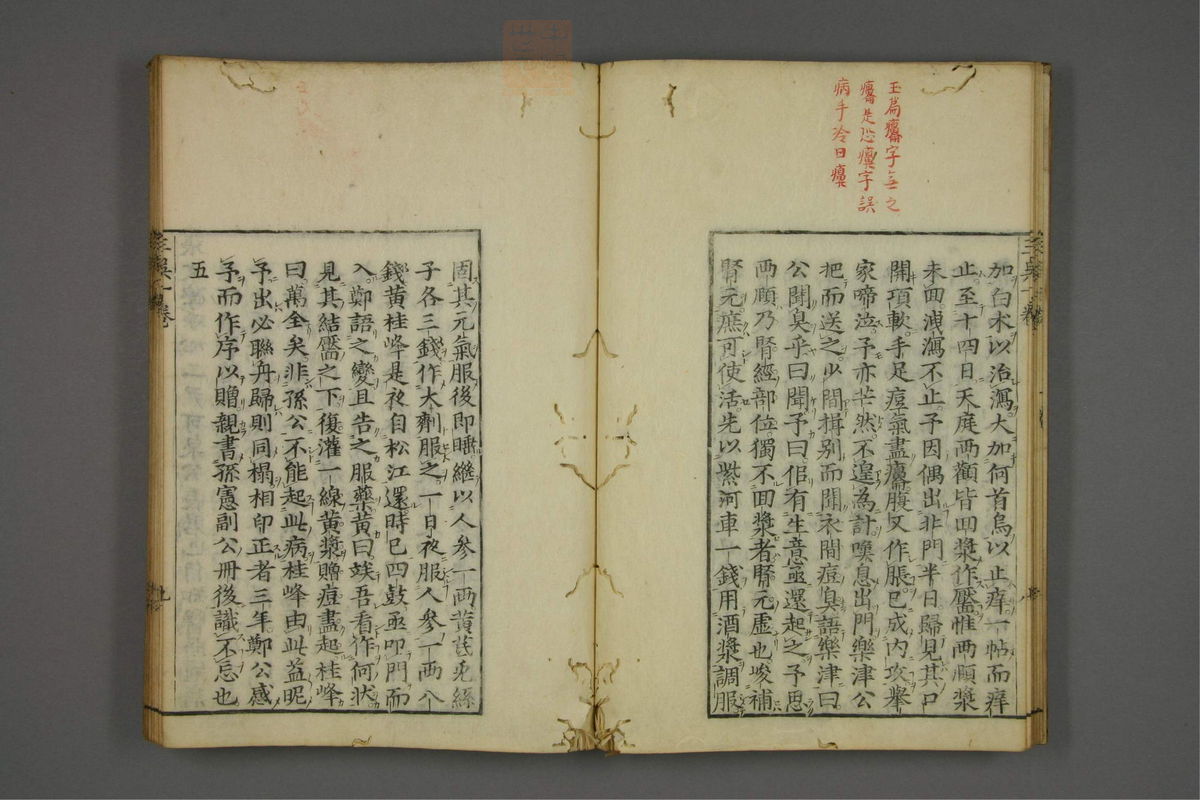 玉篇癟字無之
癟是恐癀字誤
病手冷曰癀
加白朮以治瀉大加何首烏以止痒一帖而痒
止至十四日天庭兩顴皆回漿作靨惟兩頤漿
未回洩瀉不止予因偶出北門半日歸見其口
開項軟手足痘氣盡癟腹又作脹已成內攻舉
家啼泣予亦茫然不遑為計嘆息出門樂津公
把而送之少間揖别而聞衣間痘臭語樂津曰
公聞臭乎曰聞予曰佢有生意亟還起之予思
兩頤乃腎經部位獨不回漿者腎元虛也峻補
腎元庶可使活先以紫河車一錢用酒漿調服
固其元氣服後即睡繼以人參一兩黃芪兎絲
子各三錢作大劑服之一日夜服人參一兩八
錢黃桂峰是夜自松江還時已四鼓亟叩門而
入鄭語之變且告之服藥黃曰俟吾看作何狀
見其結靨之下復灌一線黃漿贈痘盡起桂峰
曰萬全矣非孫公不能起此病桂峰由此益昵
予出必聯舟歸則同榻相印正者三年鄭公感
予而作序以贈親書孫憲副公冊後識不忘也
五